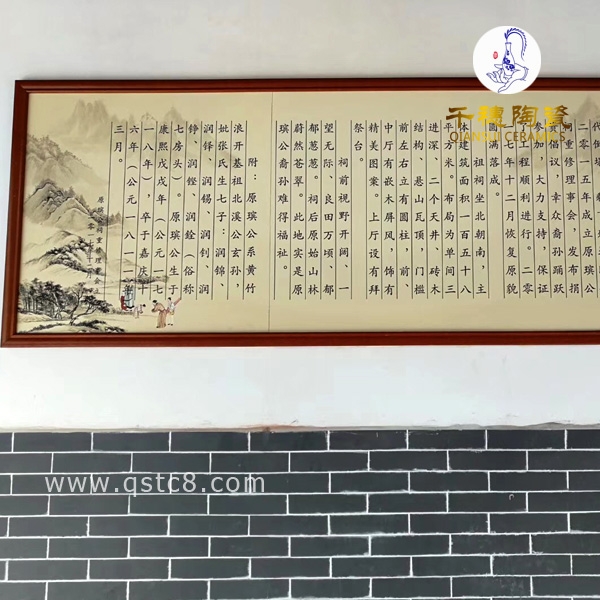 二零一五年成立原瑸公
祠重修理事会，发布捐
资倡议，幸众裔孙踊跃
参加，大力支持，保证
了工程顺利进行。二零
一七年十二月恢复原貌
圆满落成。
祖祠坐北朝南，主
体建筑面积一百五十八
平方米。布局为单间三
进深，二个天井、砖木
结构、悬山瓦顶，门槛
前左右立有圆柱，前、
中厅有嵌木屏风，饰有
精美图案。上厅设有拜
祭台。
祠前视野开阔、一
望无际、良田万顷、郁
郁葱葱。祠后原始山林
蔚然苍翠。此地实是原
瑸公裔孙难得福祉。
附：原瑸公系黄竹
浪开基祖北溪公玄孙，
妣张氏生七子：润锦、
润铎、润锡、润钊、润
铮、润铿、润銓（俗称
七房头）。原瑸公生于
康熙戊戌年（公元一七
一八年），卒于嘉庆
六年（公元一八一一
三月。
千穗陶瓷
QIANSUI CERAMICS
www.qstc8.com